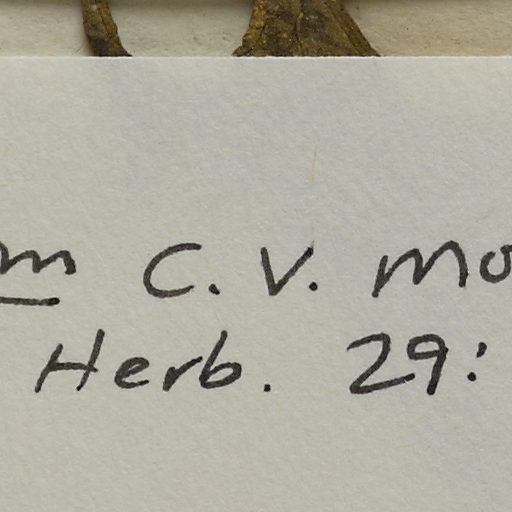 m C. V. Mo
Herb. 29: